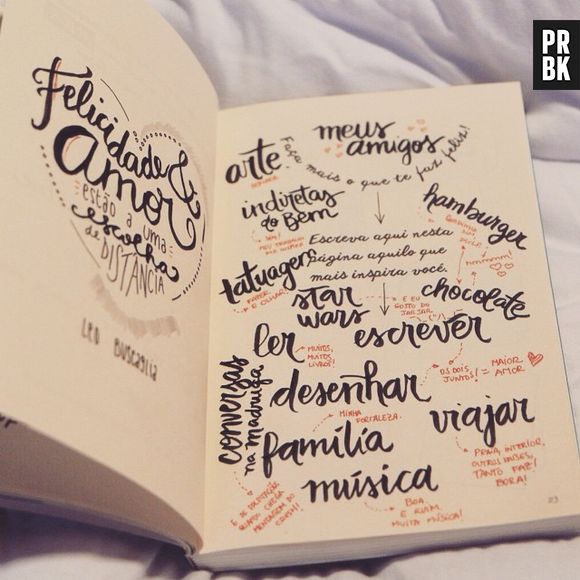 PR
BK
Felicidade &
Amor
estão a uma
escolha
de DISTÂNCIA
LEO BUSCAGLIA
meus
amigos
Faça mais o que te faz feliz!
arte
indiretas
do Bem
SIM!
MEU TRABALHO
hamburger
hmmmm!
Escreva aqui nesta
página aquilo que
mais inspira você.
tatuagem
FAZER
E OLHAR!
star
wars
E EU
GOSTO DO
JARJAR
chocolate
ler
MUITOS,
MUITOS
LIVROS!
escrever
OS DOIS,
JUNTOS! = MAIOR
AMOR
desenhar
conversas
na madruga
E DE PALPITAÇÃO
QUANDO CHEGA
MENSAGEM DO
CRUSH!
MINHA
FORTALEZA.
família
viajar
PRAIA, INTERIOR,
OUTROS PAÍSES,
TANTO FAZ!
BORA!
música
BOA
E RUIM,
MUITA MÚSICA!
23